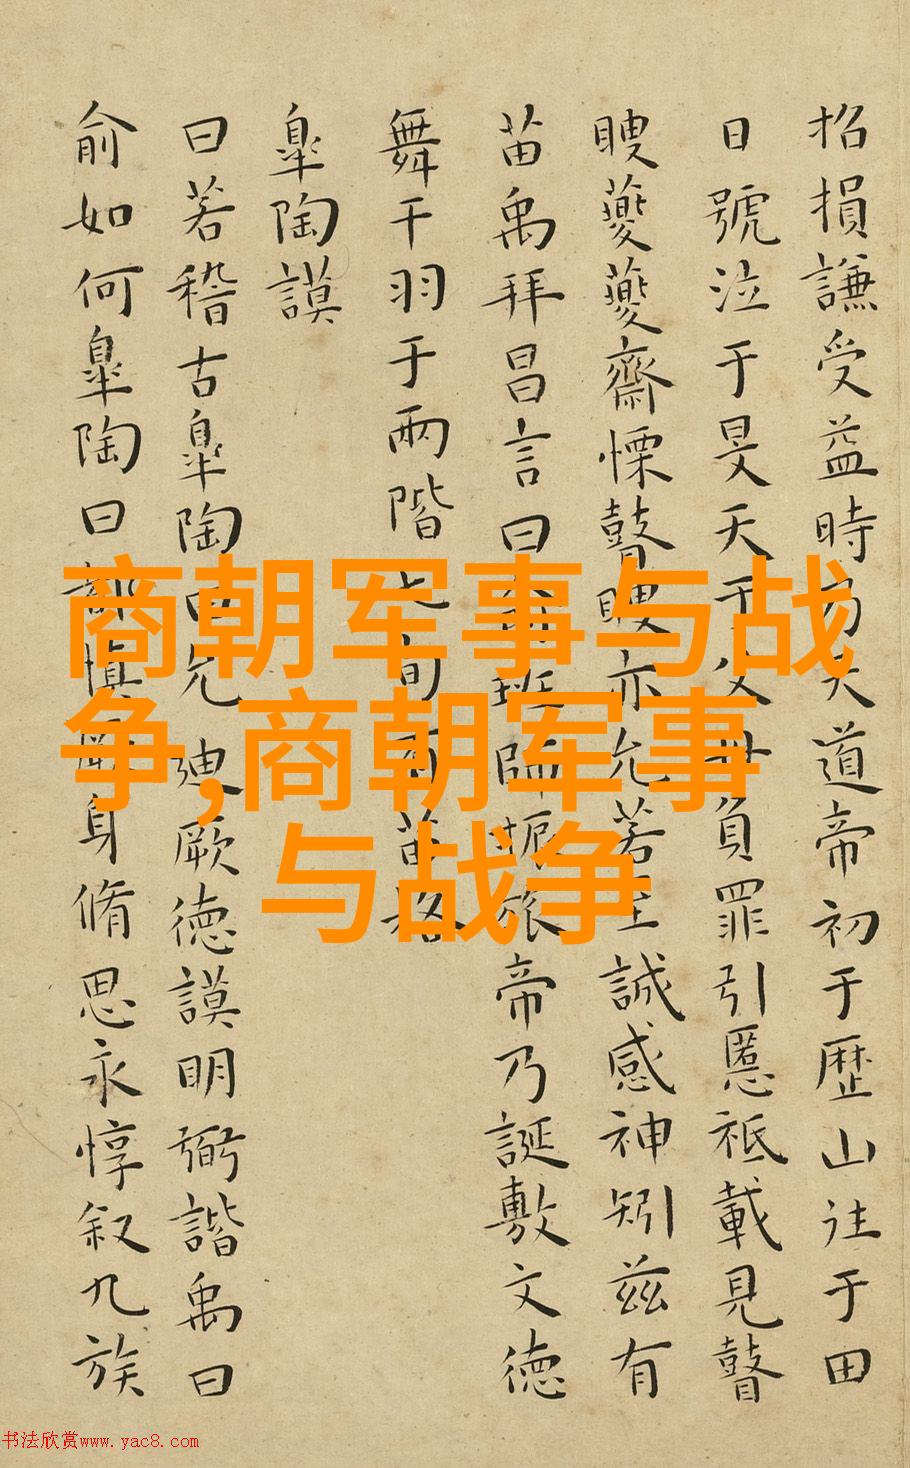 招損謙受益時乃天道帝初于歴山往于田
日號泣于旻天于父母負罪引慝祗載見瞽
瞍夔夔齋慄瞽瞍亦允若至諴感神矧茲有
苗禹拜昌言曰俞班師振旅帝乃誕敷文徳
舞干羽于兩階七旬有苗格
皐陶謨
曰若稽古皐陶曰允迪厥徳謨明弼諧禹曰
俞如何皐陶曰都慎厥身脩思永惇叙九族
商朝军事与战
争,商朝军事
与战争
书法欣赏www.yac8.com